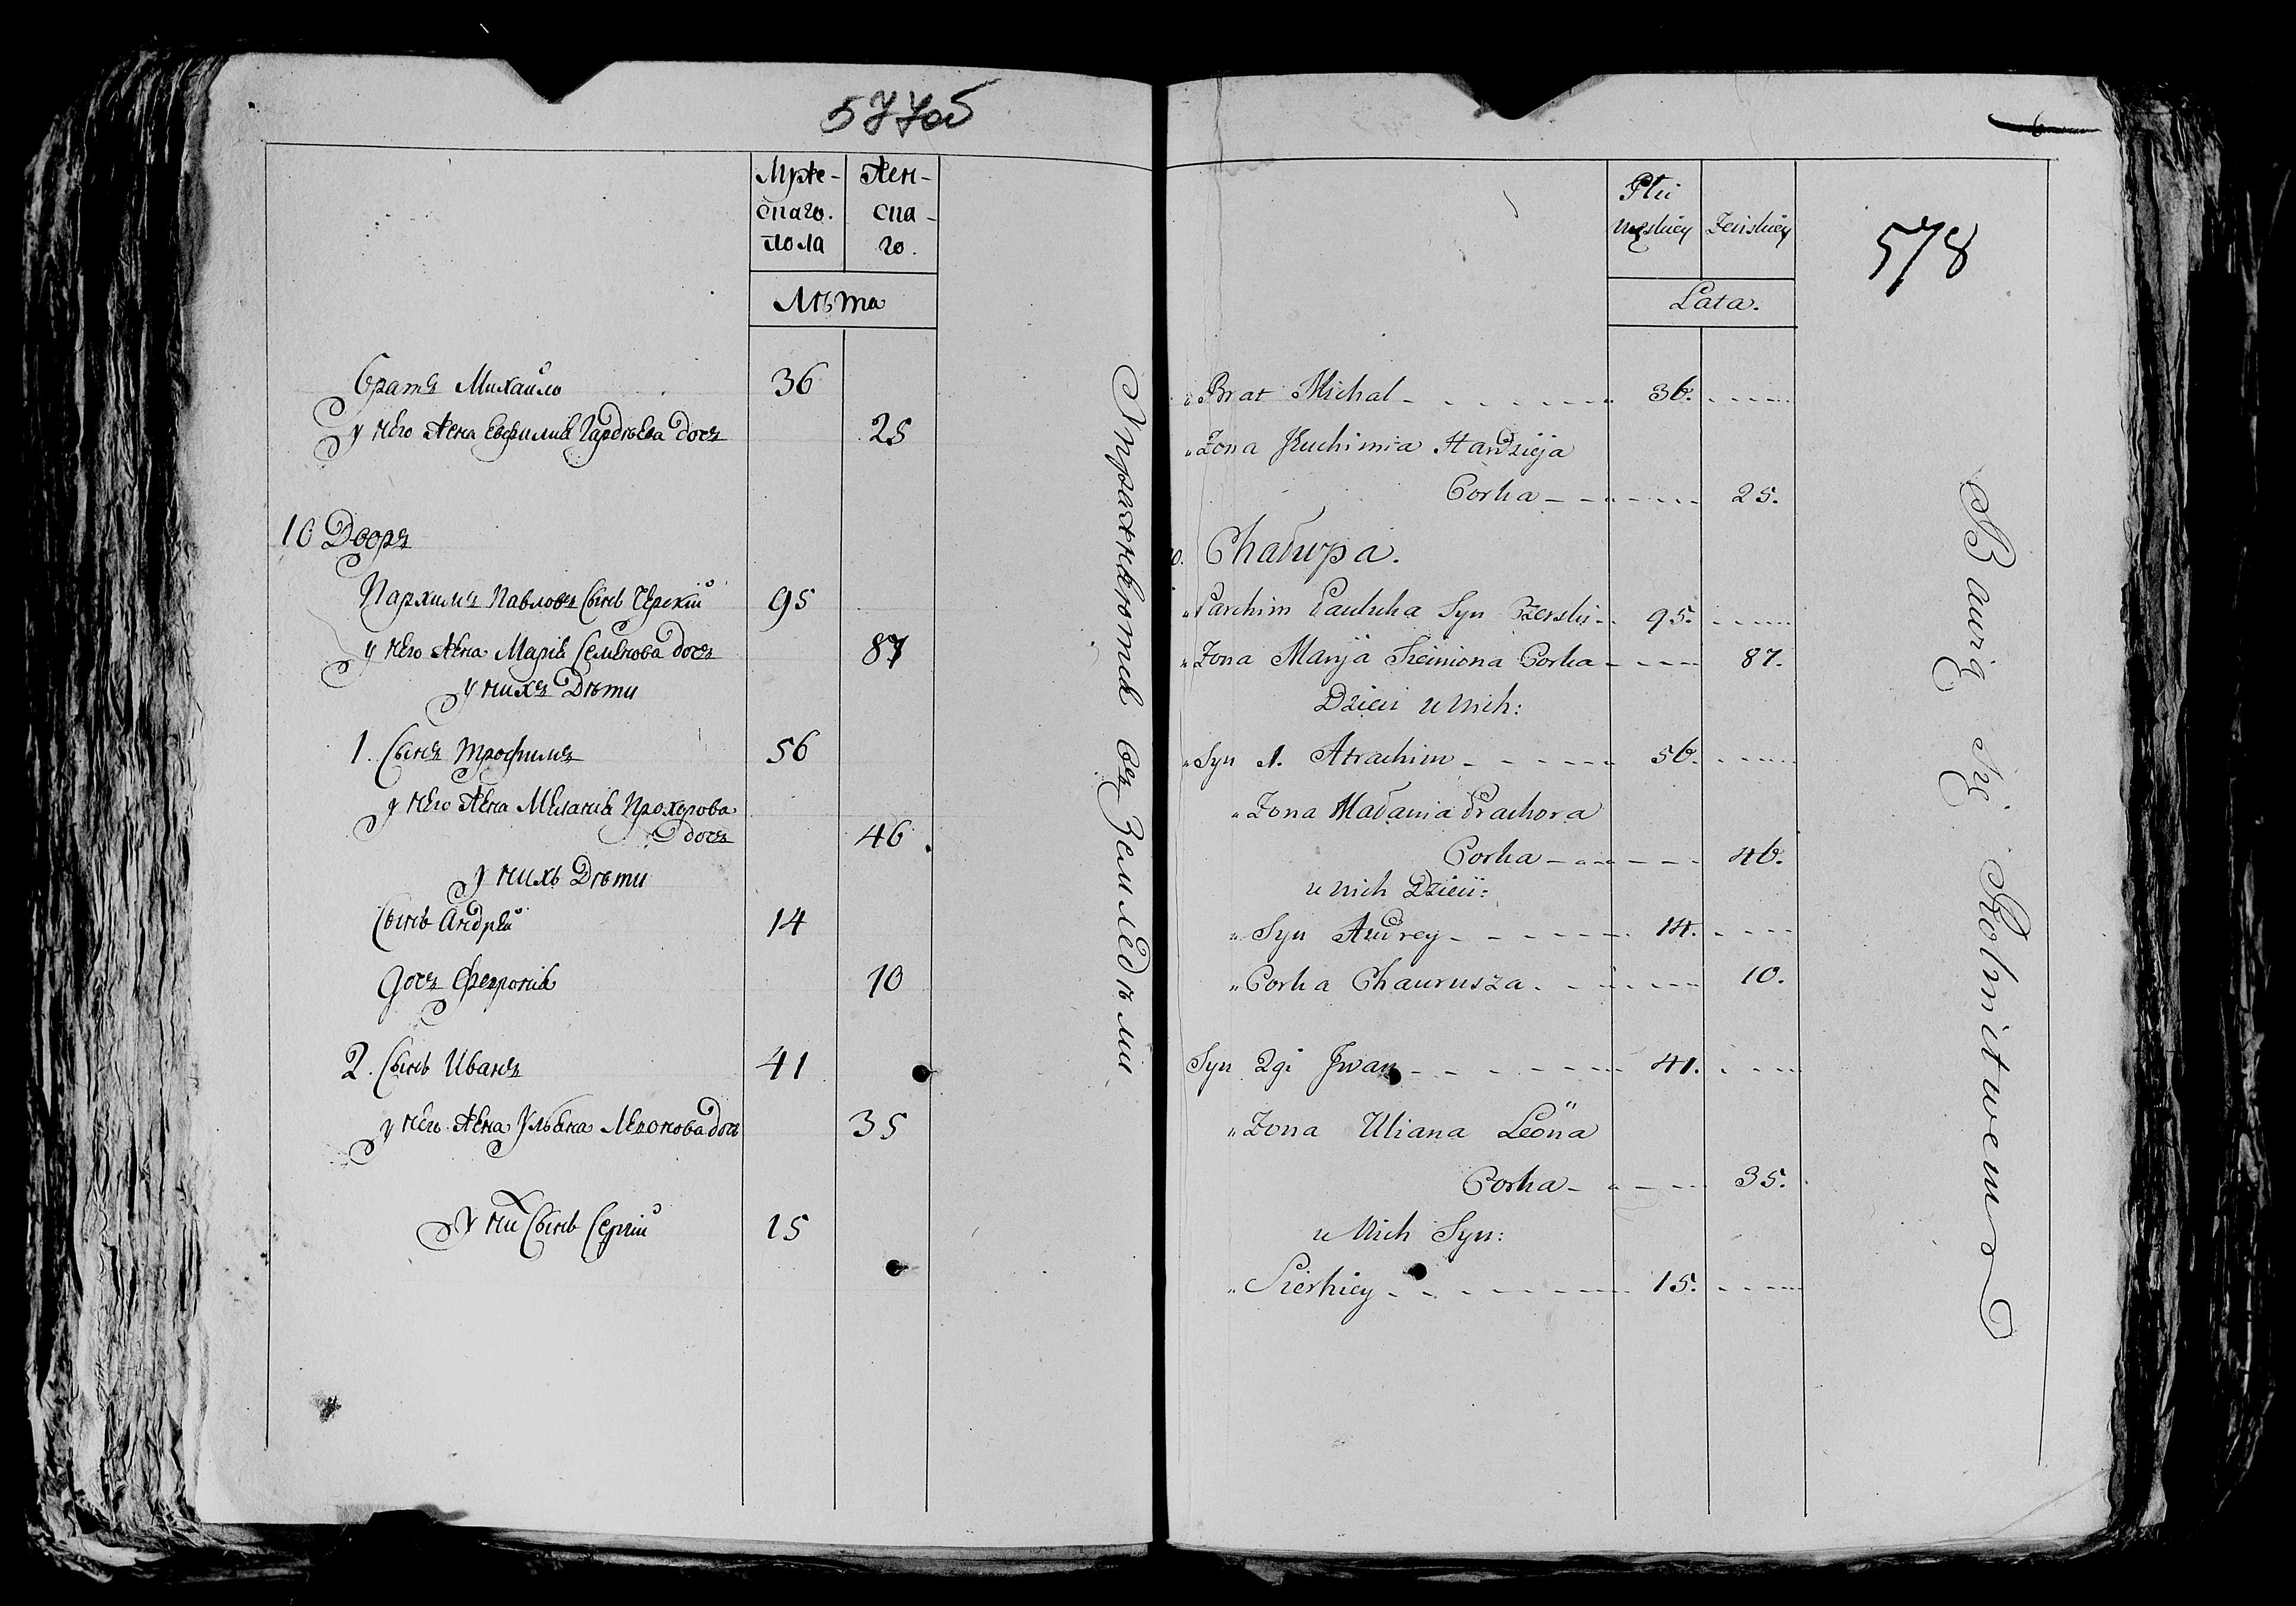 577об
Муже-
скаго
пола
Жен-
ска-
го.
Лѣта
братъ Михайло 36
у него жена Евфимия Гардѣева дочъ 25
10 Дворъ
Пархимъ Павловъ сынъ Черскій 95
у него жена Марія Семенова дочъ 87
у нихъ Дѣти
1. Сынъ Трофимъ 56
у него жена Меланія Прохорова
дочъ 46
у нихъ Дѣти
Сынъ Андрей 14
дочъ Февронія 10
2. Сынъ Иванъ 41
у него жена Ульяна Леонова дочъ 35
у них Сынъ Сергій 15
Упражняются въ Земледѣліи
6
578
Płci
męskiey
Żeńskiey
Lata.
Brat Michał 36.
Żona Juchimia Hardzieja
Corka 25.
10. Chałupa.
Parchim Pauluka Syn Czerski 95.
Żona Maryja Siemiona Corka 87.
Dzieci u nich:
Syn 1. Atrachim 56.
Żona Małania Prachora
Corka 46.
u nich Dzieci:
Syn Andrey 14.
Corka Chaurusza 10.
Syn 2gi Jwan 41.
Żona Uliana Leona
Corka 35.
u Nich Syn:
Sierhiey 15.
Bawią Się Rolnictwem